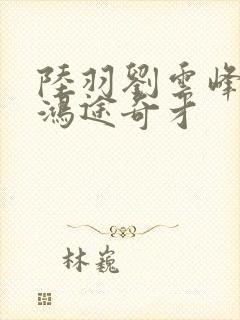 陸羽劉雲峰
鴻途奇才
林巍